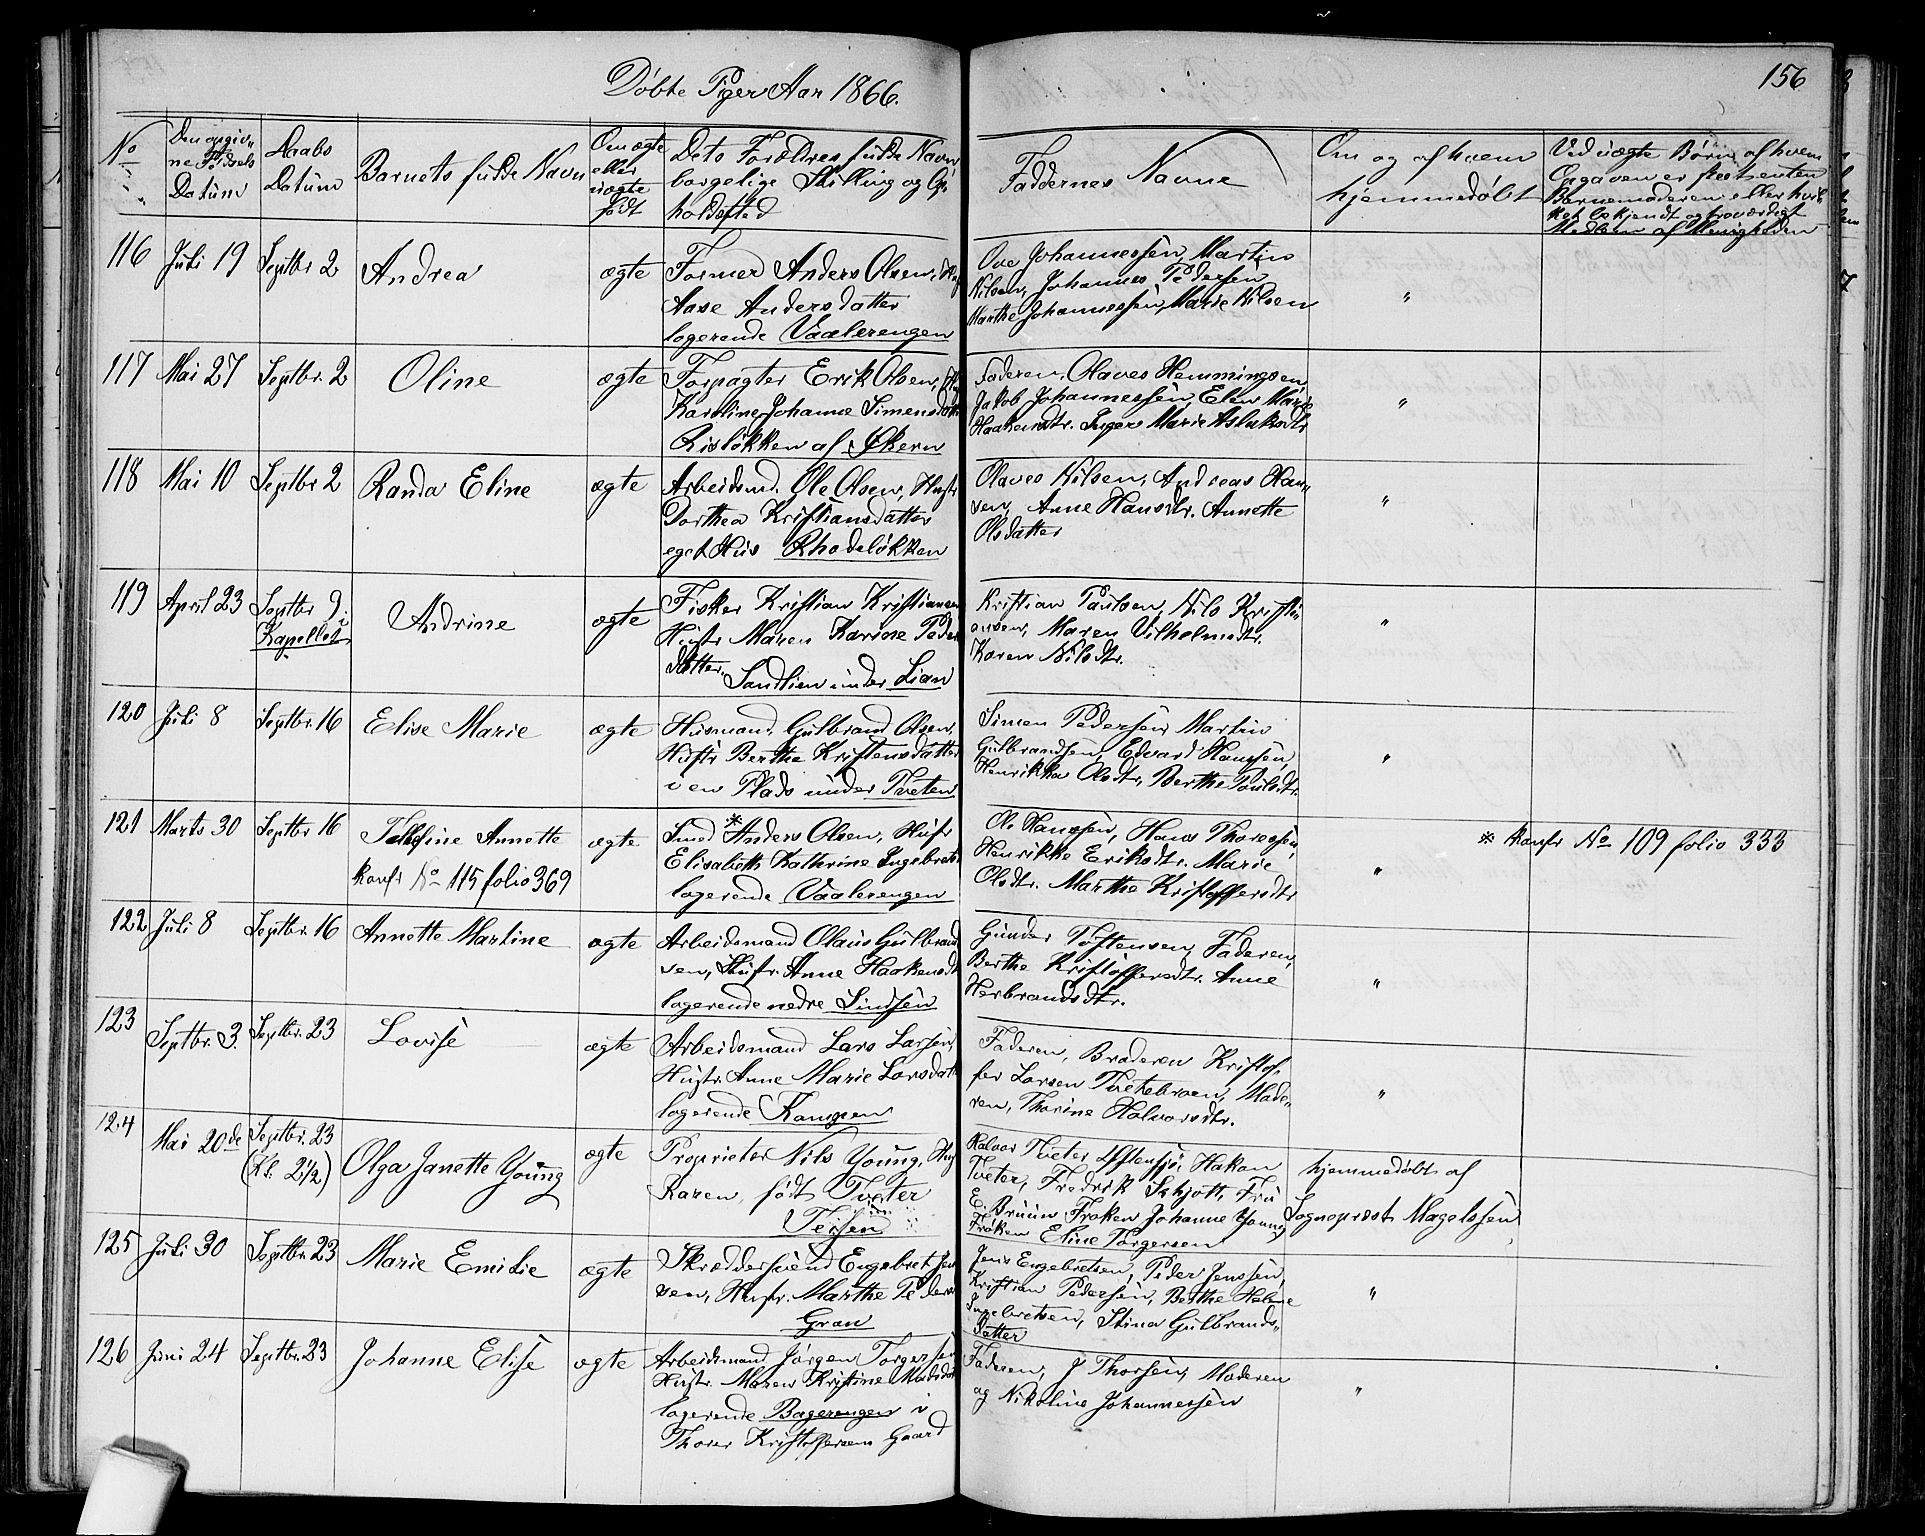 Döbte Piger Aar 1866.
156
No
Den opgiv-
ne Fødsels
Datum
Daabs
Datum
Barnets fulde Navn
Om ægte
eller
uægte
født
Dets Forældres fulde Navn
borgelige Stilling og Op-
holdssted
Faddernes Navne
Om og af hvem
hjemmedøbt
Ved uægte Børn, af hvem
Opgaven er
Barnemoderen eller hvil-
ket bekjendt og troværdigt
Medlem af Menigheden
116 Juli 19 Septbr 2 Andrea ægte Former Anders Olsen,
Aase Andersdatter
logerende Vaalerengen
Ove Johannessen, Martin
Nilsen, Johannes Pedersen
Marthe Johannessen, Marie Nilsen
"
117 Mai 27 Septbr. 2 Oline ægte Forpagter Erik Olsen,
Karoline Johanne Simensdatt
Risløkken af Økern
Faderen, Olaves Hemmingsen,
Jakob Johannessen, Elen Marie
Haakensdtr. Inger Marie Aslaksdtr
"
118 Mai 10 Septbr 2 Randa Eline ægte Arbeidsmd. Ole Olsen, Hustr
Dorthea Kristiansdatter
eget Hus Rhodeløkken
Olaves Nilsen, Andreas Han-
sen, Anne Hansdtr. Annette
Olsdatter
"
119 April 23 Septbr 9. i
Kapellet
Andrine ægte Fisker Kristian Kristiansen
Hustr Maren Karine Peder
datter. Sandlien under Lian
Kristian Paulsen, Nils Kristi-
ansen, Maren Vilhelmsdtr.
Karen Nilsdtr.
"
120 Juli 8 Septbr. 16 Elise Marie ægte Husmand Gulbrand Olsen,
Hustr Berthe Kristensdatter
i en Plads under Tveten
Simen Pedersen, Martin
Gulbrandsen, Edvard Hanssen,
Henrikka Olsdtr, Berthe Poulsdtr.
"
121 Marts 30 Septbr 16 Josefine Annette
konfr No 115 folio 369
ægte Smed * Anders Olsen, Hustr
Elisabeth Kathrine Ingebrets
logerende Vaalerengen
Ole Hanssen, Hans Thoressen,
Henrikke Eriksdtr. Marie
Olsdtr. Marthe Kristoffersdtr
"
* konfr No 109 folio 333
122 Juli 8 Septbr. 16 Annette Martine ægte Arbeidsmand Olaus Gulbrand
sen, Hustr. Anne Haakensdt
logerende nedre Sinsen
Gunder Toftensen, Faderen,
Berthe Kristoffersdtr. Anne
Herbrandsdtr.
"
123 Septbr. 3. Septbr. 23 Lovise ægte Arbeidsmand Lars Larsen,
Hustr. Anne Marie Larsdatt
logerende Kampen
Faderen, Broderen Kristof-
fer Larsen Tvetebroen, Mode-
ren, Thorine Halvorsdtr.
"
124 Mai 20de Septbr. 23
(Kl. 2 1/2)
Olga Janette Young ægte Proprietær Nils Young, Hus
Karen, født Tveter
Teisen
Halvor Tveter Østensjø, Hakon
Tveter, Fredrik Schjøtt, Fru
E. Bruun Frøken Johanne Young
Frøken Eline Torgersen
hjemmedøbt af
Sognepræst Magelssen
125 Juli 30 Septbr. 23 Marie Emilie ægte Skræddersvend Engebret Jen
sen, Hustr. Marthe Peders
Gran
Jens Engebretsen, Peder Jenssen,
Kristian Pedersen, Berthe Helene
Ingebretsen, Stina Gulbrands-
datter
"
126 Juni 24 Septbr. 23 Johanne Elise ægte Arbeidsmand Jørgen Torgersen
Hustr. Maren Kristine Madsdat
logerende Bagerengen i
Thorer Kristoffersens Gaard
Faderen, J Thorsen, Moderen
og Nikoline Johannessen
"